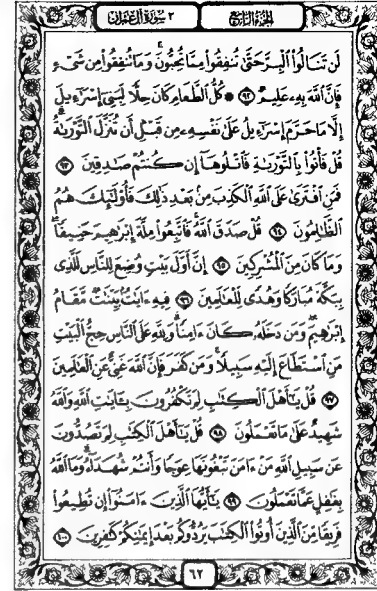 الجزء الرابع
٣ سورة آل عمران
لَن تَنَالُوا۟ ٱلْبِرَّ حَتَّىٰ تُنفِقُوا۟ مِمَّا تُحِبُّونَ ۚ وَمَا تُنفِقُوا۟ مِن شَىْءٍ
فَإِنَّ ٱللَّهَ بِهِۦ عَلِيمٌ ٩٢ ۞ كُلُّ ٱلطَّعَامِ كَانَ حِلًّا لِّبَنِىٓ إِسْرَٰٓءِيلَ
إِلَّا مَا حَرَّمَ إِسْرَٰٓءِيلُ عَلَىٰ نَفْسِهِۦ مِن قَبْلِ أَن تُنَزَّلَ ٱلتَّوْرَىٰةُ ۗ
قُلْ فَأْتُوا۟ بِٱلتَّوْرَىٰةِ فَٱتْلُوهَآ إِن كُنتُمْ صَٰدِقِينَ ٩٣
فَمَنِ ٱفْتَرَىٰ عَلَى ٱللَّهِ ٱلْكَذِبَ مِنۢ بَعْدِ ذَٰلِكَ فَأُو۟لَٰٓئِكَ هُمُ
ٱلظَّٰلِمُونَ ٩٤ قُلْ صَدَقَ ٱللَّهُ ۗ فَٱتَّبِعُوا۟ مِلَّةَ إِبْرَٰهِيمَ حَنِيفًا ۖ
وَمَا كَانَ مِنَ ٱلْمُشْرِكِينَ ٩٥ إِنَّ أَوَّلَ بَيْتٍ وُضِعَ لِلنَّاسِ لَلَّذِى
بِبَكَّةَ مُبَارَكًا وَهُدًى لِّلْعَٰلَمِينَ ٩٦ فِيهِ ءَايَٰتٌۢ بَيِّنَٰتٌ مَّقَامُ
إِبْرَٰهِيمَ ۖ وَمَن دَخَلَهُۥ كَانَ ءَامِنًا ۗ وَلِلَّهِ عَلَى ٱلنَّاسِ حِجُّ ٱلْبَيْتِ
مَنِ ٱسْتَطَاعَ إِلَيْهِ سَبِيلًا ۚ وَمَن كَفَرَ فَإِنَّ ٱللَّهَ غَنِىٌّ عَنِ ٱلْعَٰلَمِينَ
٩٧ قُلْ يَٰٓأَهْلَ ٱلْكِتَٰبِ لِمَ تَكْفُرُونَ بِـَٔايَٰتِ ٱللَّهِ وَٱللَّهُ
شَهِيدٌ عَلَىٰ مَا تَعْمَلُونَ ٩٨ قُلْ يَٰٓأَهْلَ ٱلْكِتَٰبِ لِمَ تَصُدُّونَ
عَن سَبِيلِ ٱللَّهِ مَنْ ءَامَنَ تَبْغُونَهَا عِوَجًا وَأَنتُمْ شُهَدَآءُ ۗ وَمَا ٱللَّهُ
بِغَٰفِلٍ عَمَّا تَعْمَلُونَ ٩٩ يَٰٓأَيُّهَا ٱلَّذِينَ ءَامَنُوٓا۟ إِن تُطِيعُوا۟
فَرِيقًا مِّنَ ٱلَّذِينَ أُوتُوا۟ ٱلْكِتَٰبَ يَرُدُّوكُم بَعْدَ إِيمَٰنِكُمْ كَٰفِرِينَ ١٠٠
٦٢